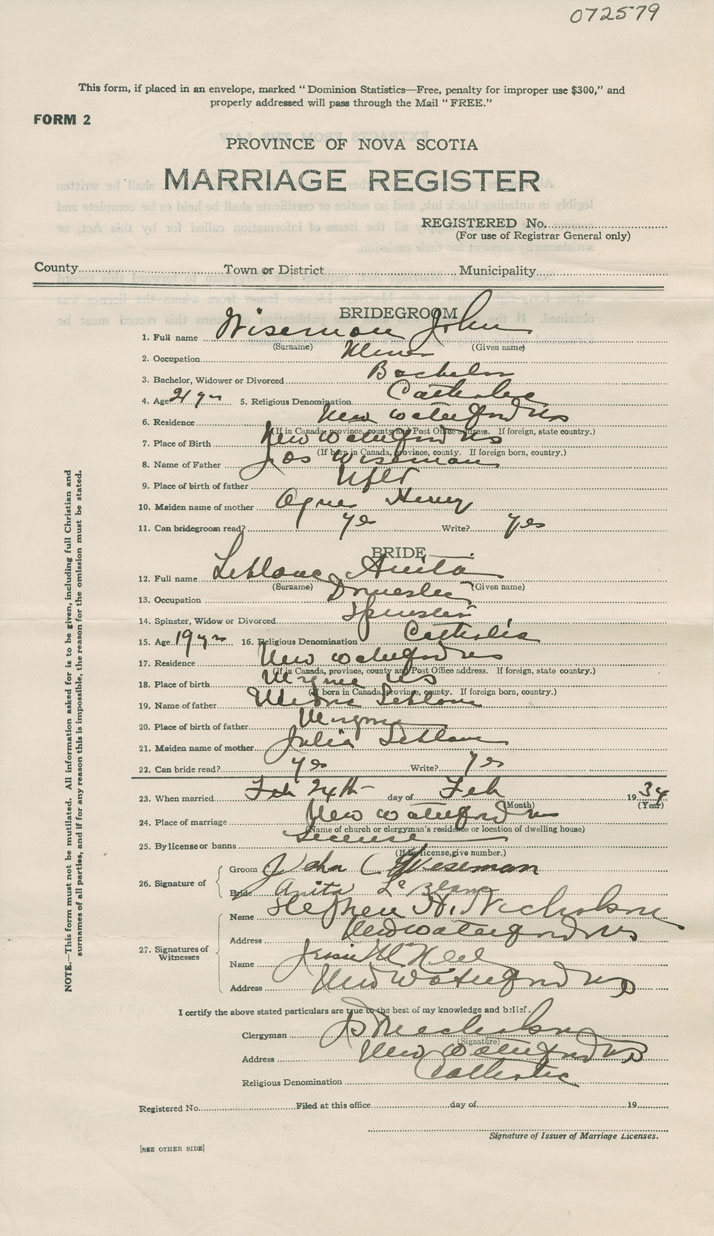 072579
This form, if placed in an envelope, marked "Dominion Statistics—Free, penalty for improper use $300," and
properly addressed will pass through the Mail "FREE."
FORM 2
PROVINCE OF NOVA SCOTIA
MARRIAGE REGISTER
REGISTERED No.
(For use of Registrar General only)
County Town or District Municipality
BRIDEGROOM
1. Full name Wiseman John
(Surname) (Given name)
2. Occupation Miner
3. Bachelor, Widower or Divorced Bachelor
4. Age 21 yrs 5. Religious Denomination Catholic
6. Residence New Waterford NS
(If in Canada, province, county and Post Office address. If foreign, state country.)
7. Place of Birth New Waterford NS
(If born in Canada, province, county. If foreign born, country.)
8. Name of Father Jos Wiseman
9. Place of birth of father Nfld
10. Maiden name of mother Agnes
11. Can bridegroom read? yes Write? yes
BRIDE
12. Full name Leblanc Anita
(Surname) (Given name)
13. Occupation Domestic
14. Spinster, Widow or Divorced Spinster
15. Age 19 yrs 16. Religious Denomination Catholic
17. Residence New Waterford NS
(If in Canada, province, county and Post Office address. If foreign, state country.)
18. Place of birth NS
(If born in Canada, province, county. If foreign born, country.)
19. Name of father Leblanc
20. Place of birth of father
21. Maiden name of mother Julia Leblanc
22. Can bride read? yes Write? yes
23. When married Feb 24th day of Feb 1934
(Month) (Year)
24. Place of marriage New Waterford NS
(Name of church or clergyman's residence or location of dwelling house)
25. By license or banns License
(If by license, give number.)
26. Signature of Groom John C Wiseman
Bride Anita LeBlanc
27. Signatures of Witnesses
Name Stephen A. Nicholson
Address New Waterford NS
Name Jessie McNeil
Address New Waterford NS
I certify the above stated particulars are true to the best of my knowledge and belief.
Clergyman Nicholson
(Signature)
Address New Waterford NS
Religious Denomination Catholic
Registered No. Filed at this office day of 19
Signature of Issuer of Marriage Licenses.
[SEE OTHER SIDE]
NOTE.—This form must not be mutilated. All information asked for is to be given, including full Christian and
surnames of all parties, and if for any reason this is impossible, the reason for the omission must be stated.